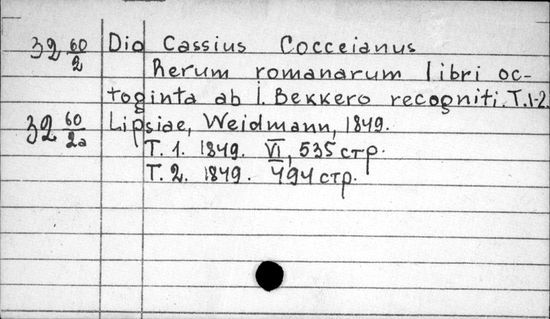 32 60/2 Dio Cassius Cocceianus
Rerum romanarum libri oc-
toginta ab I. Bekkero recogniti. T.1-2.
32 60/2a Lipsiae, Weidmann, 1849.
T. 1. 1849. VI, 535 стр.
T. 2. 1849. 494 стр.